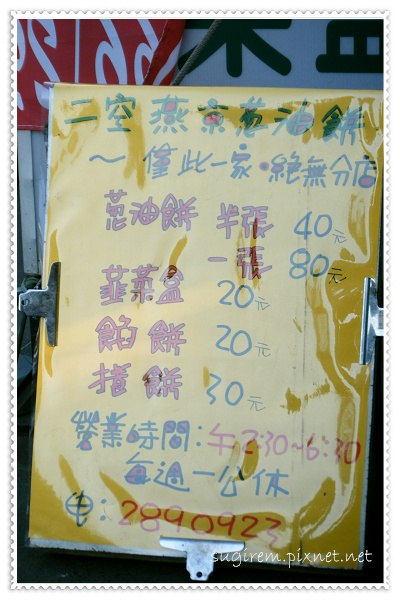 二空燕京葱油餅
～僅此一家·絕無分店
葱油餅 半張 40元
一張 80元
韮菜盒 20元
餡餅 20元
揸餅 30元
營業時間：午2:30~6:30
每週一公休
電：2890923
sugirem.pixnet.net